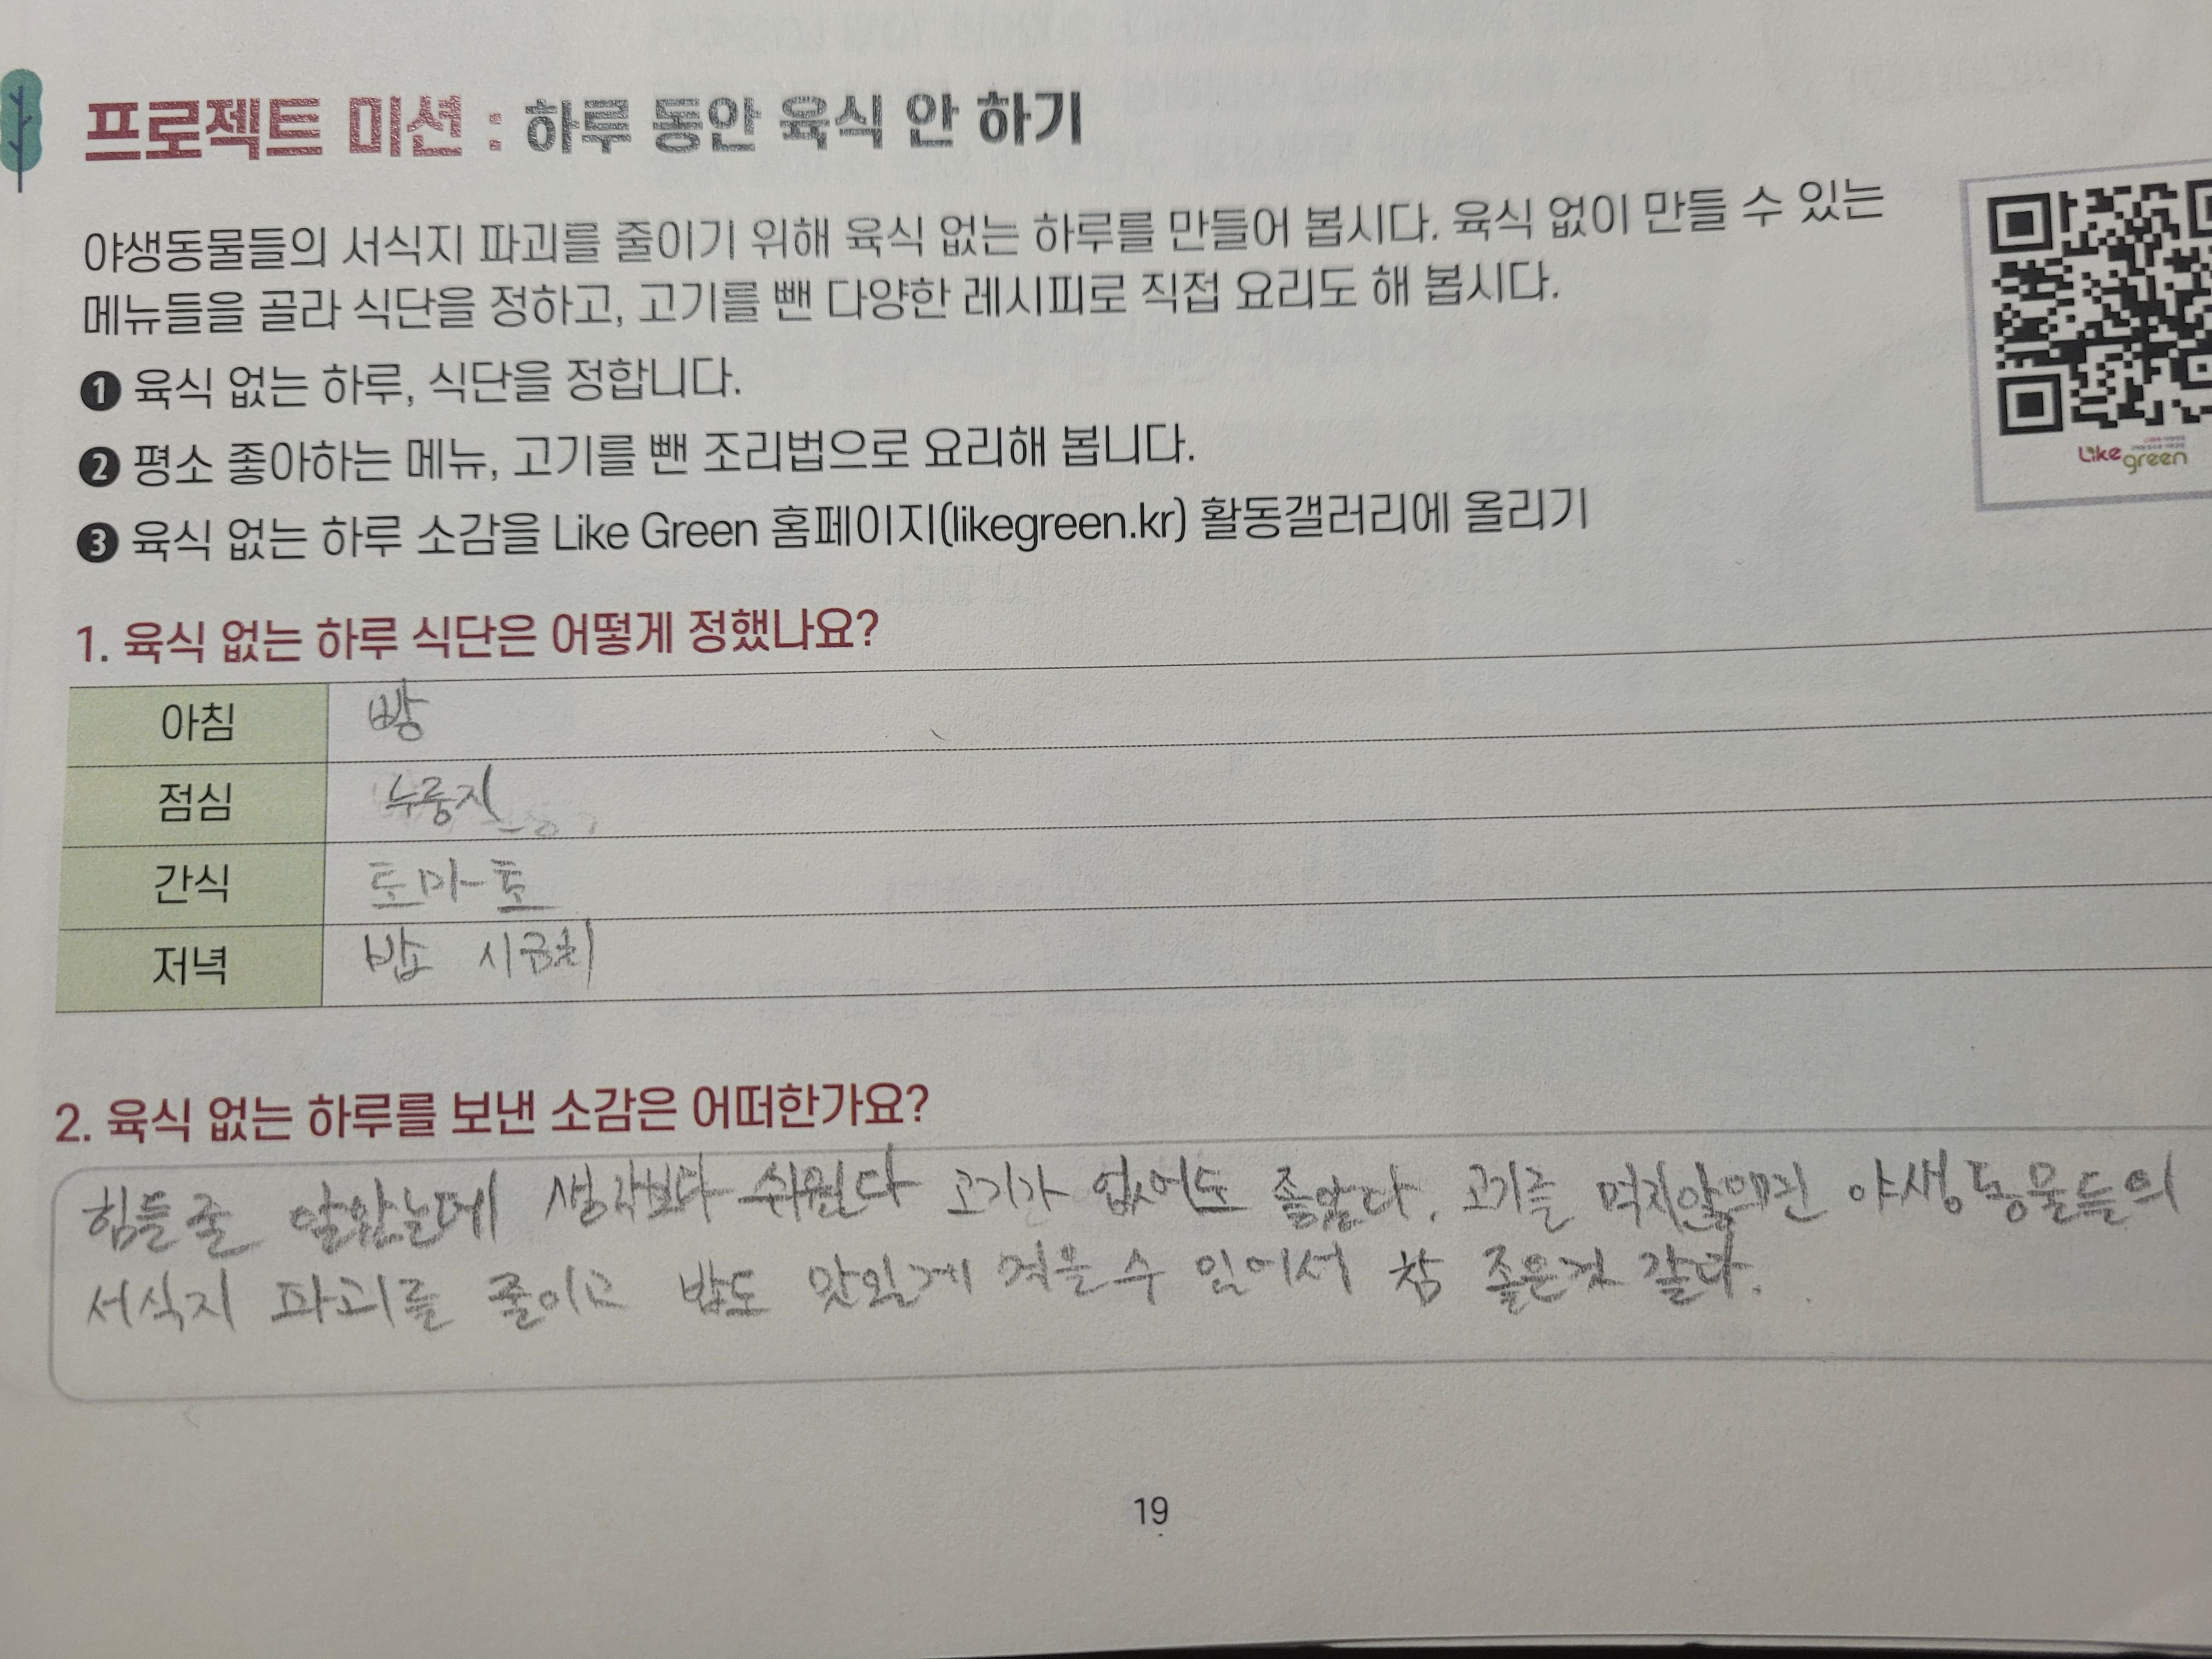 프로젝트 미션 : 하루 동안 육식 안 하기
야생동물들의 서식지 파괴를 줄이기 위해 육식 없는 하루를 만들어 봅시다. 육식 없이 만들 수 있는
메뉴들을 골라 식단을 정하고, 고기를 뺀 다양한 레시피로 직접 요리도 해 봅시다.
❶ 육식 없는 하루, 식단을 정합니다.
❷ 평소 좋아하는 메뉴, 고기를 뺀 조리법으로 요리해 봅니다.
❸ 육식 없는 하루 소감을 Like Green 홈페이지(likegreen.kr) 활동갤러리에 올리기
Like green
1. 육식 없는 하루 식단은 어떻게 정했나요?
아침 빵
점심 누룽지
간식 토마토
저녁 밥 시금치
2. 육식 없는 하루를 보낸 소감은 어떠한가요?
힘들줄 알았는데 생각보다 쉬웠다 고기가 없어도 좋았다. 고기를 먹지않으면 야생동물들의
서식지 파괴를 줄이고 밥도 맛있게 먹을수 있어서 참 좋은것 같다.
19